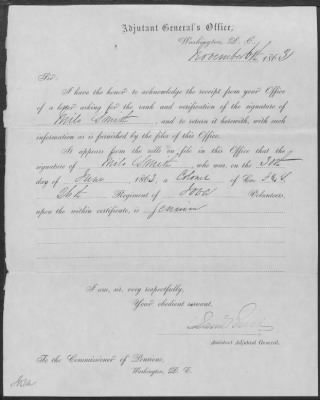 Adjutant General's Office,
Washington, D. C.,
November 1863
Sir:
I have the honor to acknowledge the receipt from your Office
of a letter asking for the rank and verification of the signature of
Milo Smith, and to return it herewith, with such
information as is furnished by the files of this Office.
It appears from the rolls on file in this Office that the
signature of Milo Smith who was, on the 30th
day of June 1863, a Colonel of Co. F&S
26th Regiment of Iowa Volunteers,
upon the within certificate, is genuine
I am, sir, very respectfully,
Your obedient servant,
Assistant Adjutant General.
To the Commissioner of Pensions,
Washington, D. C.